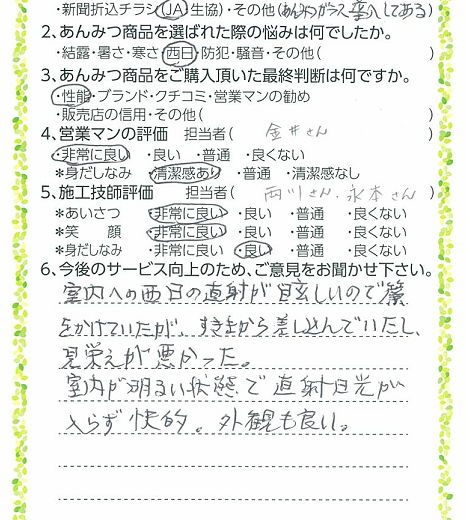 ・新聞折込チラシ(JA)生協)・その他(あんみつガラス購入してある)
2、あんみつ商品を選ばれた際の悩みは何でしたか。
・結露・暑さ・寒さ・西日・防犯・騒音・その他( )
3、あんみつ商品をご購入頂いた最終判断は何ですか。
・性能・ブランド・クチコミ・営業マンの勧め
・販売店の信用・その他( )
4、営業マンの評価 担当者( 金井さん )
・非常に良い ・良い ・普通 ・良くない
*身だしなみ ・清潔感あり ・普通 ・清潔感なし
5、施工技師評価 担当者( 西川さん、永本さん )
*あいさつ ・非常に良い ・良い ・普通 ・良くない
*笑 顔 ・非常に良い ・良い ・普通 ・良くない
*身だしなみ ・非常に良い ・良い ・普通 ・良くない
6、今後のサービス向上のため、ご意見をお聞かせ下さい。
室内への西日の直射が眩しいので簾
をかけていたが、すき間から差し込んでいたし、
見栄えが悪かった。
室内が明るい状態で直射日光が
入らず快的。外観も良い。